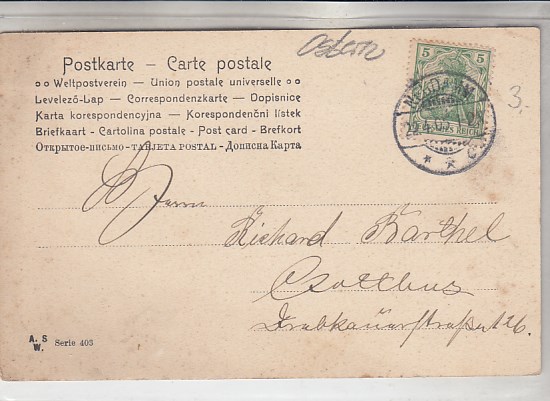 Ostern
Postkarte – Carte postale
Weltpostverein – Union postale universelle
Levelező-Lap – Correspondenzkarte – Dopisnice
Karta korespondencyjna – Korespondenční lístek
Briefkaart – Cartolina postale – Post card – Brefkort
Открытое-письмо – TARJETA POSTAL – Дописна Карта
5 5
REICH
3.
Herrn
Richard Barthel
Cottbus
Drebkauerstraße 126.
A. S
W. Serie 403